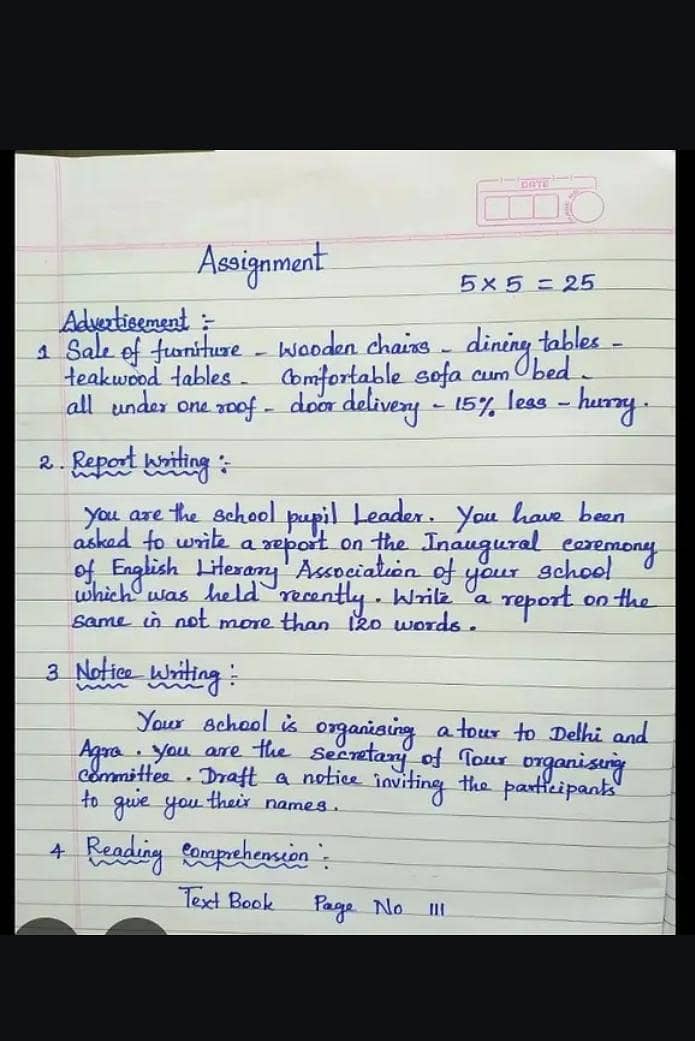 DATE
Assignment
5 × 5 = 25
Advertisement :-
1 Sale of furniture - Wooden chairs - dining tables -
teakwood tables - Comfortable sofa cum bed -
all under one roof - door delivery - 15% less - hurry.
2. Report Writing :-
You are the school pupil Leader. You have been
asked to write a report on the Inaugural ceremony
of English Literary Association of your school
which was held recently. Write a report on the
same in not more than 120 words.
3 Notice Writing :-
Your school is organising a tour to Delhi and
Agra. You are the Secretary of Tour organising
committee. Draft a notice inviting the participants
to give you their names.
4 Reading Comprehension :-
Text Book Page No 111